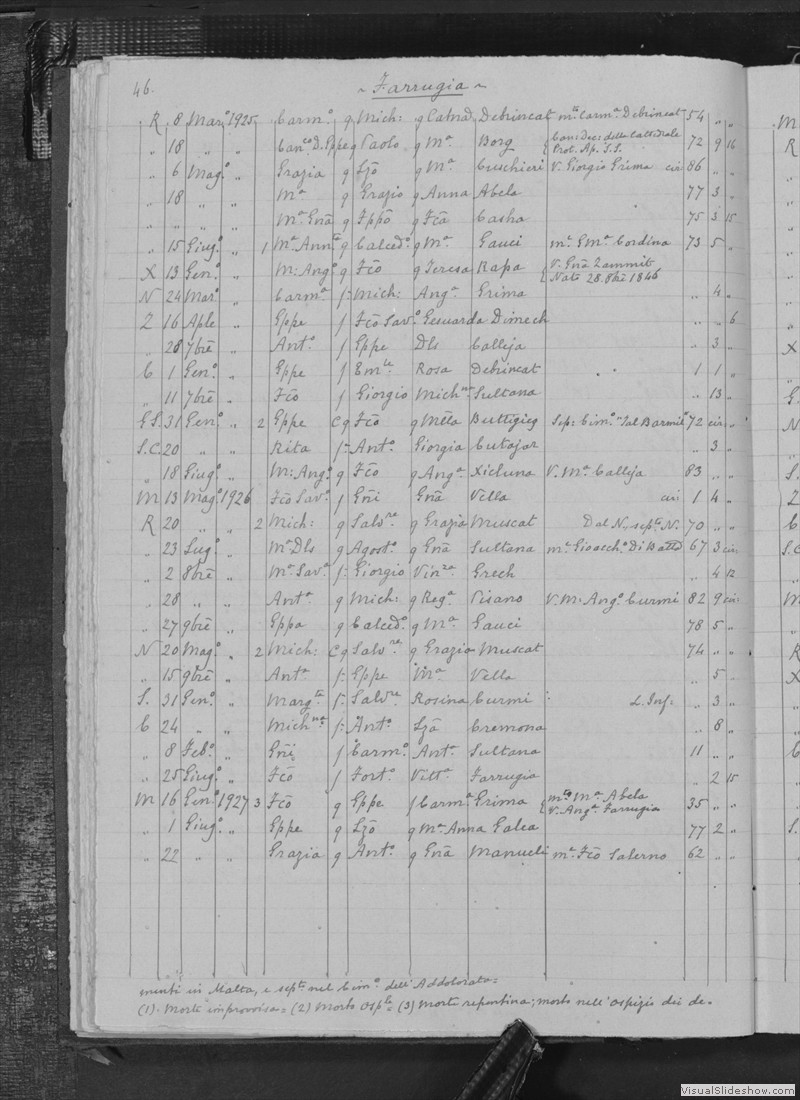 46.
~ Farrugia ~
R 8 Mar.º 1925 Carm.º q Mich: q Catnã Debrincat mª Carmª Debrincat 54 " "
" 18 " " Can.co D. Eppe q Paolo q Mª Borg { Can: Dec: della Cattedrale Prot. Ap. I.S. 72 9 16
" 6 Mag.º " Grazia q Lzõ q Mª Cuschieri V. Giorgio Grima cir: 86 " "
" 18 " " Mª q Grazio q Anna Abela 77 3 "
" " " " Mª Gnã q Fppõ q Fcã Casha 75 3 15
" 15 Giug.º " 1 Mª Annta q Calced.º q Mª Gauci mª Emª Cordina 73 5 "
X 13 Gen.º " M: Ang.ª q Fcõ q Teresa Rapa { V. Gnã Zammit Nata 28. 8bre 1846
N 24 Mar.º " Carmª f: Mich: Angª Grima " 4 "
Z 16 Aple " Eppe f Fcõ Sav.º Gesuarda Dimech " " 6
" 28 7bre " Ant.º f Eppe Dls Calleja " 3 "
C 1 Gen.º " Eppe f Emle Rosa Debrincat 1 1 "
" 11 7bre " Fcõ f Giorgio Michna Sultana " 13 "
G.S. 31 Gen.º " 2 Eppe C q Fcõ q Mella Buttigieg Sep: Cim.º "Tal Barmil" 72 cir: "
S.C. 20 " " Rita f: Ant.º Giorgia Cutajar " 3 "
" 18 Giug.º " M: Ang.ª q Fcõ q Angª Xicluna V. Mª Calleja 83 " "
M 13 Mag.º 1926 Fcõ Sav.º f Gñi Gnã Vella cir: 1 4 "
R 20 " " 2 Mich: q Salvre q Grazia Muscat Dal N., septo N. 70 " "
" 23 Lug.º " Mª Dls q Agost.º q Gnã Sultana mª Gioacch.º Di Batta 67 3 cir:
" 2 8bre " Mª Savª f: Giorgio Vinza Grech " 4 12
" 28 " " Antª q Mich: q Regª Pisano V. M: Ang.º Curmi 82 9 cir:
" 27 9bre " Eppa q Calced.º q Mª Gauci 78 5 "
N 20 Mag.º " 2 Mich: C q Salvre q Grazia Muscat 74 " "
" 15 9bre " Antª f: Eppe Mª Vella " 5 "
S. 31 Gen.º " Margta f: Salvre Rosina Curmi L. Inf: " 3 "
C 24 " " Michna f: Ant.º Lzã Cremona " 8 "
" 8 Feb.º " Gñi f Carm.º Antª Sultana 11 " "
" 25 Giug.º " Fcõ f Fort.º Vittª Farrugia " 2 15
M 16 Gen.º 1927 3 Fcõ q Eppe f Carmª Grima { mto Mª Abela V. Angª Farrugia 35 " "
" 1 Giug.º " Eppe q Lzõ q Mª Anna Galea 77 2 "
" 22 " " Grazia q Ant.º q Gnã Manueli mª Fcõ Salerno 62 " "
menti in Malta, e septo nel Cim.º dell'Addolorata=
(1). Morte improvvisa= (2) Morto Osple= (3) Morte repentina; morto nell'Ospizio dei de-
VisualSlideshow.com